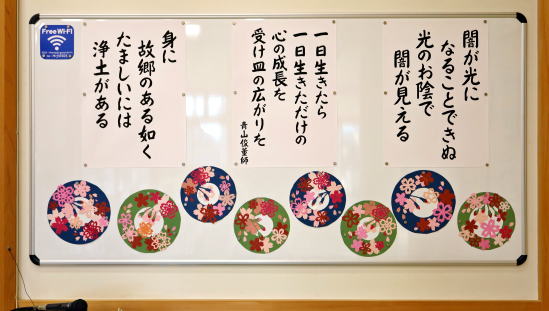 Free Wi-Fi
闇が光に
なることできぬ
光のお陰で
闇が見える
一日生きたら
一日生きただけの
心の成長を
受け皿の広がりを
青山俊董師
身に
故郷のある如く
たましいには
浄土がある